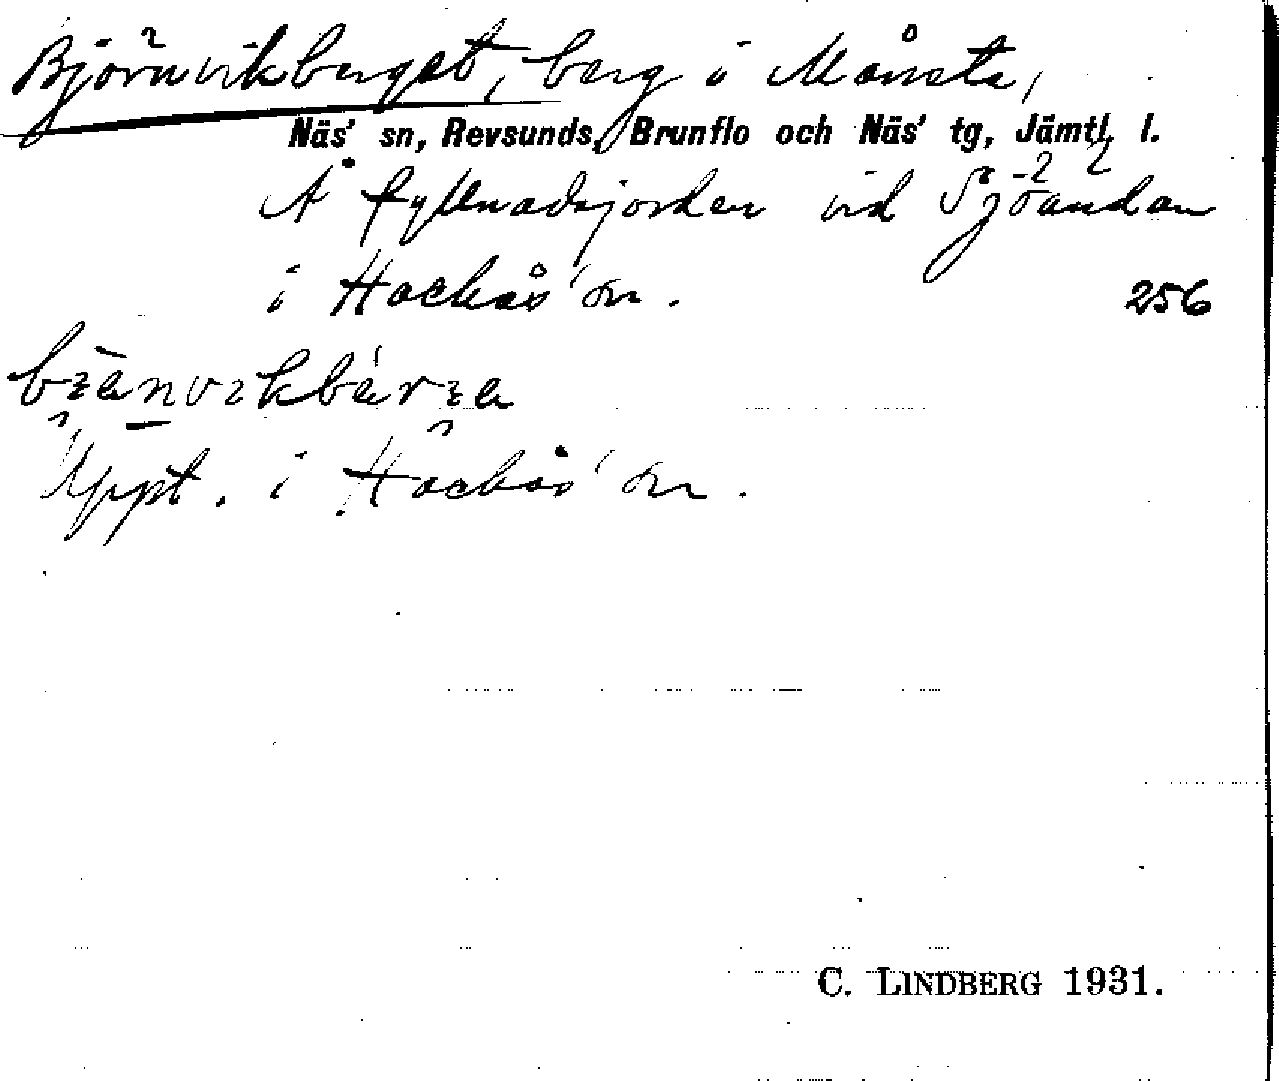 Björnvikberget, berg i Månsta,
Näs' sn, Revsunds, Brunflo och Näs' tg, Jämtl. l.
Å fyllnadsjorden vid Sjöändan
i Hackås' sn.
256
Uppt. i Hackås' sn.
C. LINDBERG 1931.